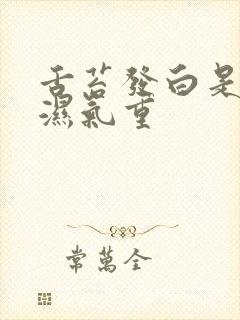 舌苔發白是
濕氣重
常萬全